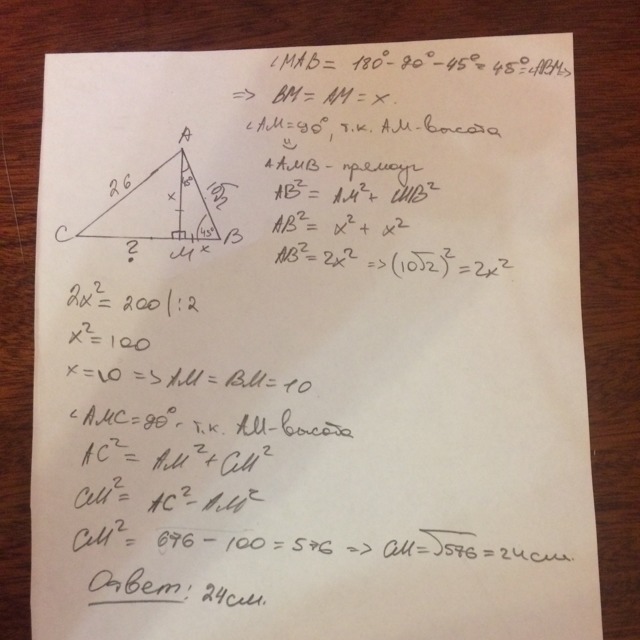 ∠MAB = 180° - 90° - 45° = 45° = ∠ABM =>
=> BM = AM = x.
∠AM = 90°, т.к. AM - высота
△AMB - прямоуг
AB² = AM² + MB²
AB² = x² + x²
AB² = 2x² => (10√2)² = 2x²
A
26
x
45°
10√2
45°
C
?
M
x
B
2x² = 200 | : 2
x² = 100
x = 10 => AM = BM = 10
∠AMC = 90° - т.к. AM - высота
AC² = AM² + CM²
CM² = AC² - AM²
CM² = 676 - 100 = 576 => CM = √576 = 24 см.
Ответ: 24 см.